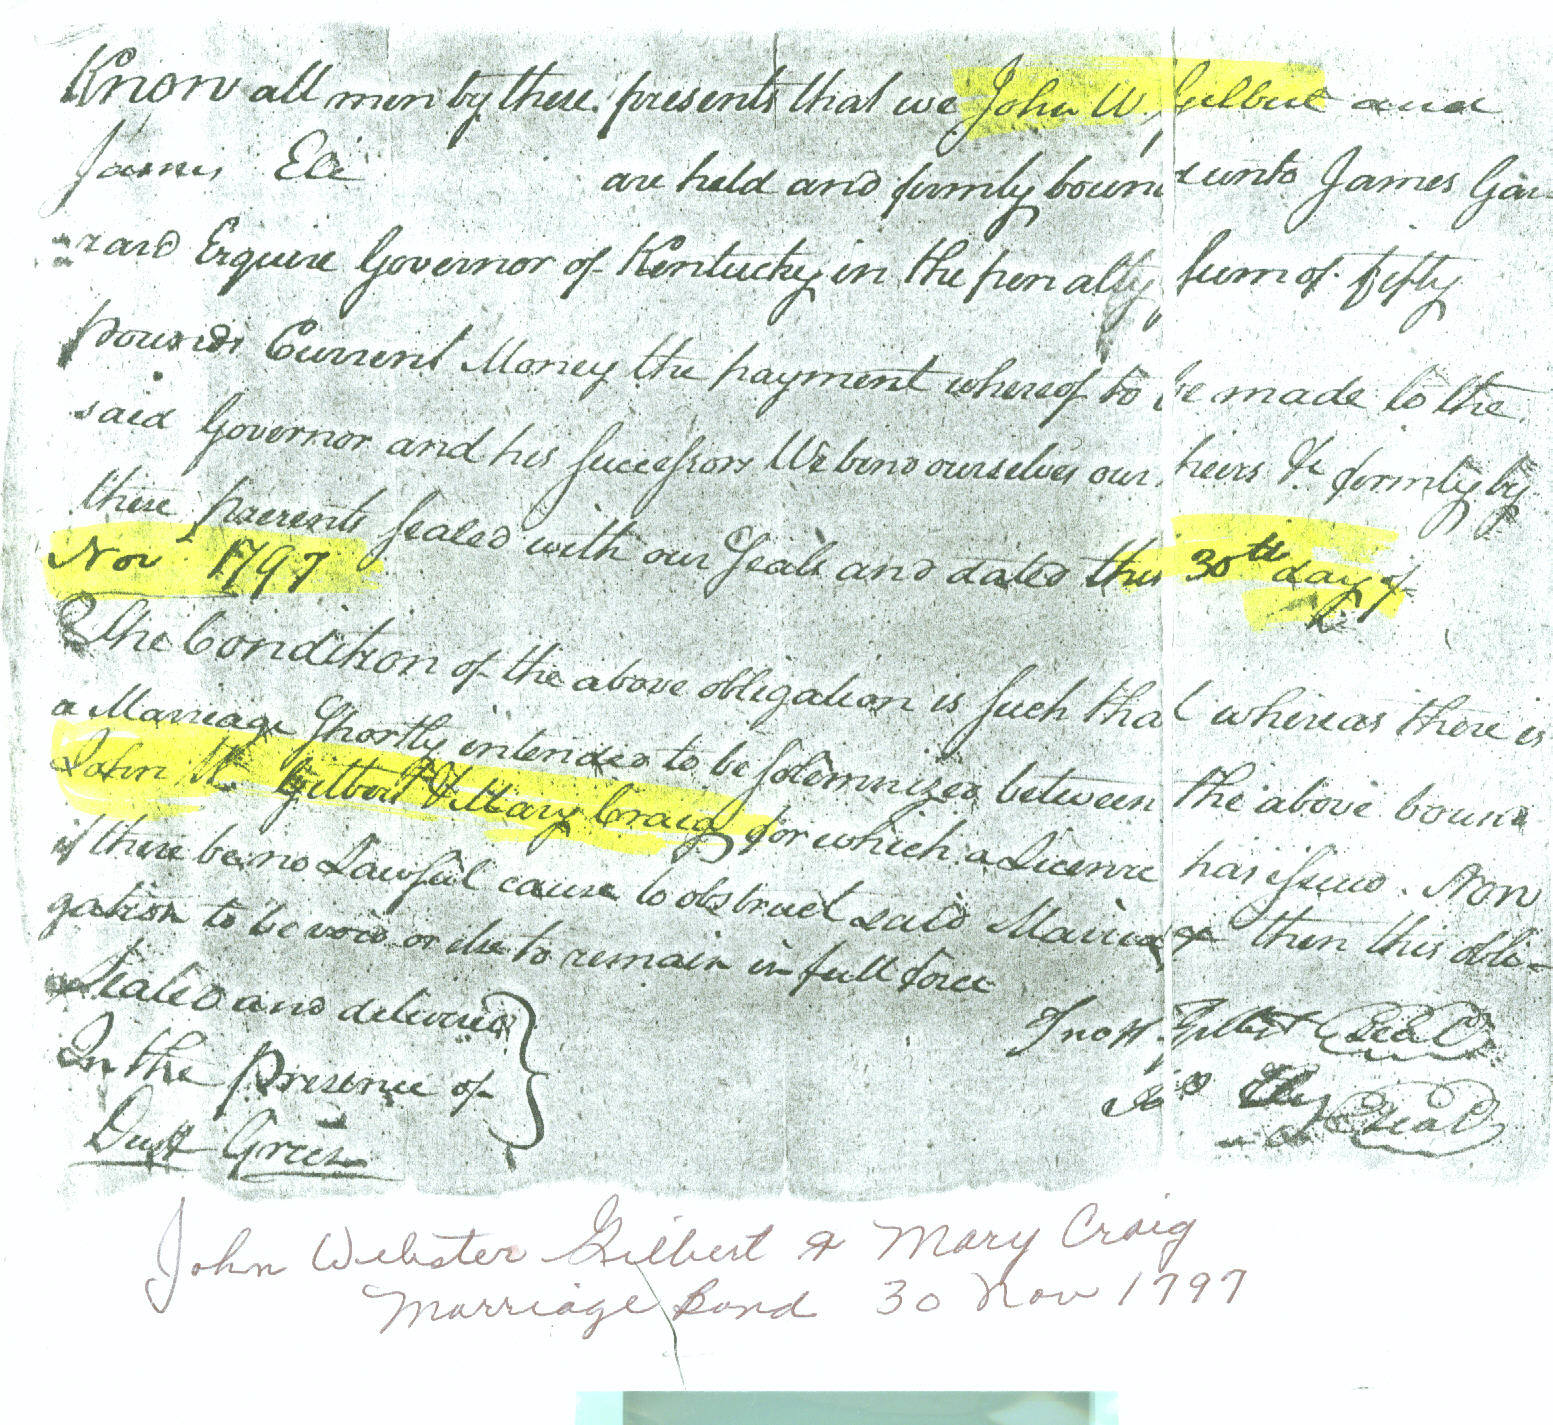 Know all men by these presents that we John W. Gilbert and
James Eli are held and firmly bound unto James Gar
rard Esquire Governor of Kentucky in the penalty sum of fifty
pounds Current Money the payment whereof to be made to the
said Governor and his successors We bind ourselves our heirs &c firmly by
these presents sealed with our seals and dated this 30th day of
Nov 1797
The Condition of the above obligation is such that whereas there is
a Marriage shortly intended to be solemnized between the above bound
John W Gilbert & Mary Craig for which a Licence has issued. Now
if there be no Lawful cause to obstruct said Marriage then this obli-
gation to be void or else to remain in full force
Sealed and delivered
In the Presence of
Green
Jno W. Gilbert Seal
Jas Ely Seal
John Webster Gilbert & Mary Craig
Marriage Bond 30 Nov 1797